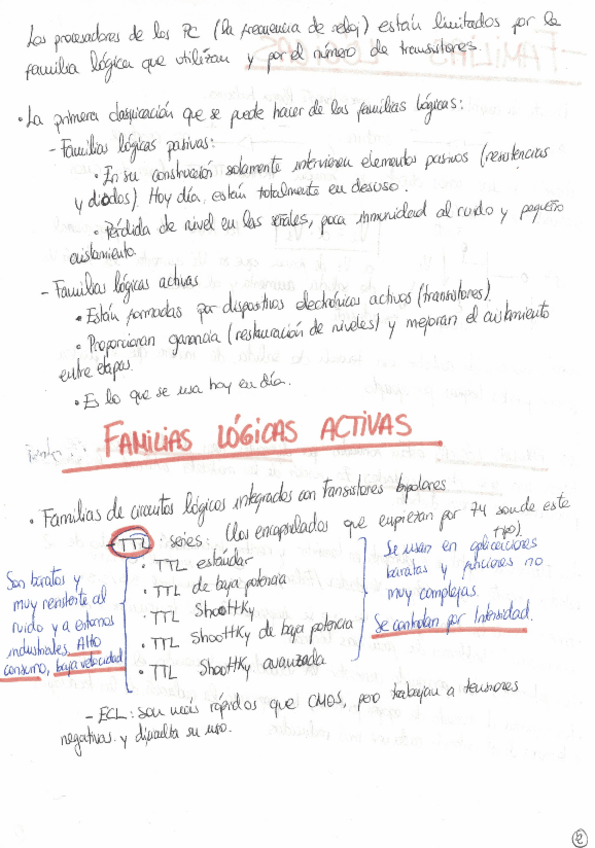 Los procesadores de los PC (la frecuencia de reloj) están limitados por la
familia lógica que utilizan y por el número de transistores.
• La primera clasificación que se puede hacer de las familias lógicas:
- Familias lógicas pasivas:
• En su construcción solamente intervienen elementos pasivos (resistencias
y diodos). Hoy día, están totalmente en desuso.
• Pérdida de nivel en las señales, poca inmunidad al ruido y pequeño
aislamiento.
- Familias lógicas activas
• Están formadas por dispositivos electrónicos activos (transistores).
• Proporcionan ganancia (restauración de niveles) y mejoran el aislamiento
entre etapas.
• Es lo que se usa hoy en día.
FAMILIAS LÓGICAS ACTIVAS
• Familias de circuitos lógicos integrados con transistores bipolares
- TTL: series: (los encapsulados que empiezan por 74 son de este
tipo)
• TTL estándar
• TTL de baja potencia
• TTL Shoottky
• TTL Shoottky de baja potencia
• TTL Shoottky avanzada
Son baratos y
muy resistente al
ruido y a entornos
industriales, Alto
consumo, baja velocidad
Se usan en aplicaciones
baratas y funciones no
muy complejas.
Se controlan por Intensidad.
- ECL: son más rápidos que CMOS, pero trabajan a tensiones
negativas y dificulta su uso.
2